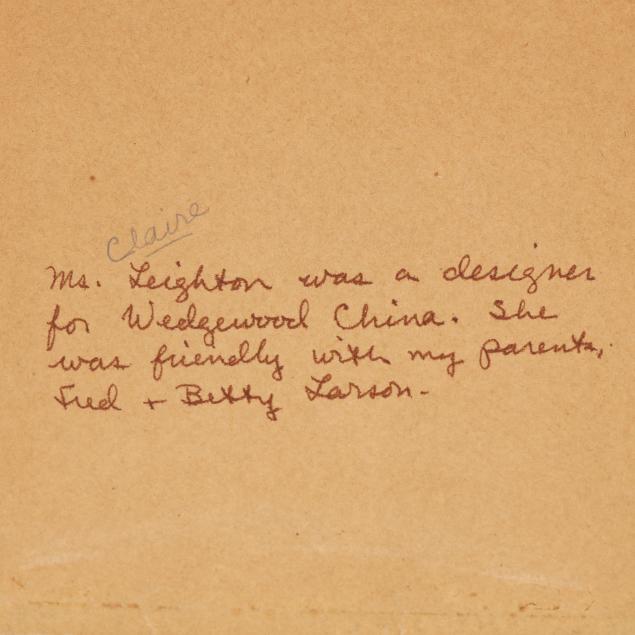 Claire
Ms. Leighton was a designer
for Wedgewood China. She
was friendly with my parents,
Fred + Betty Larson.